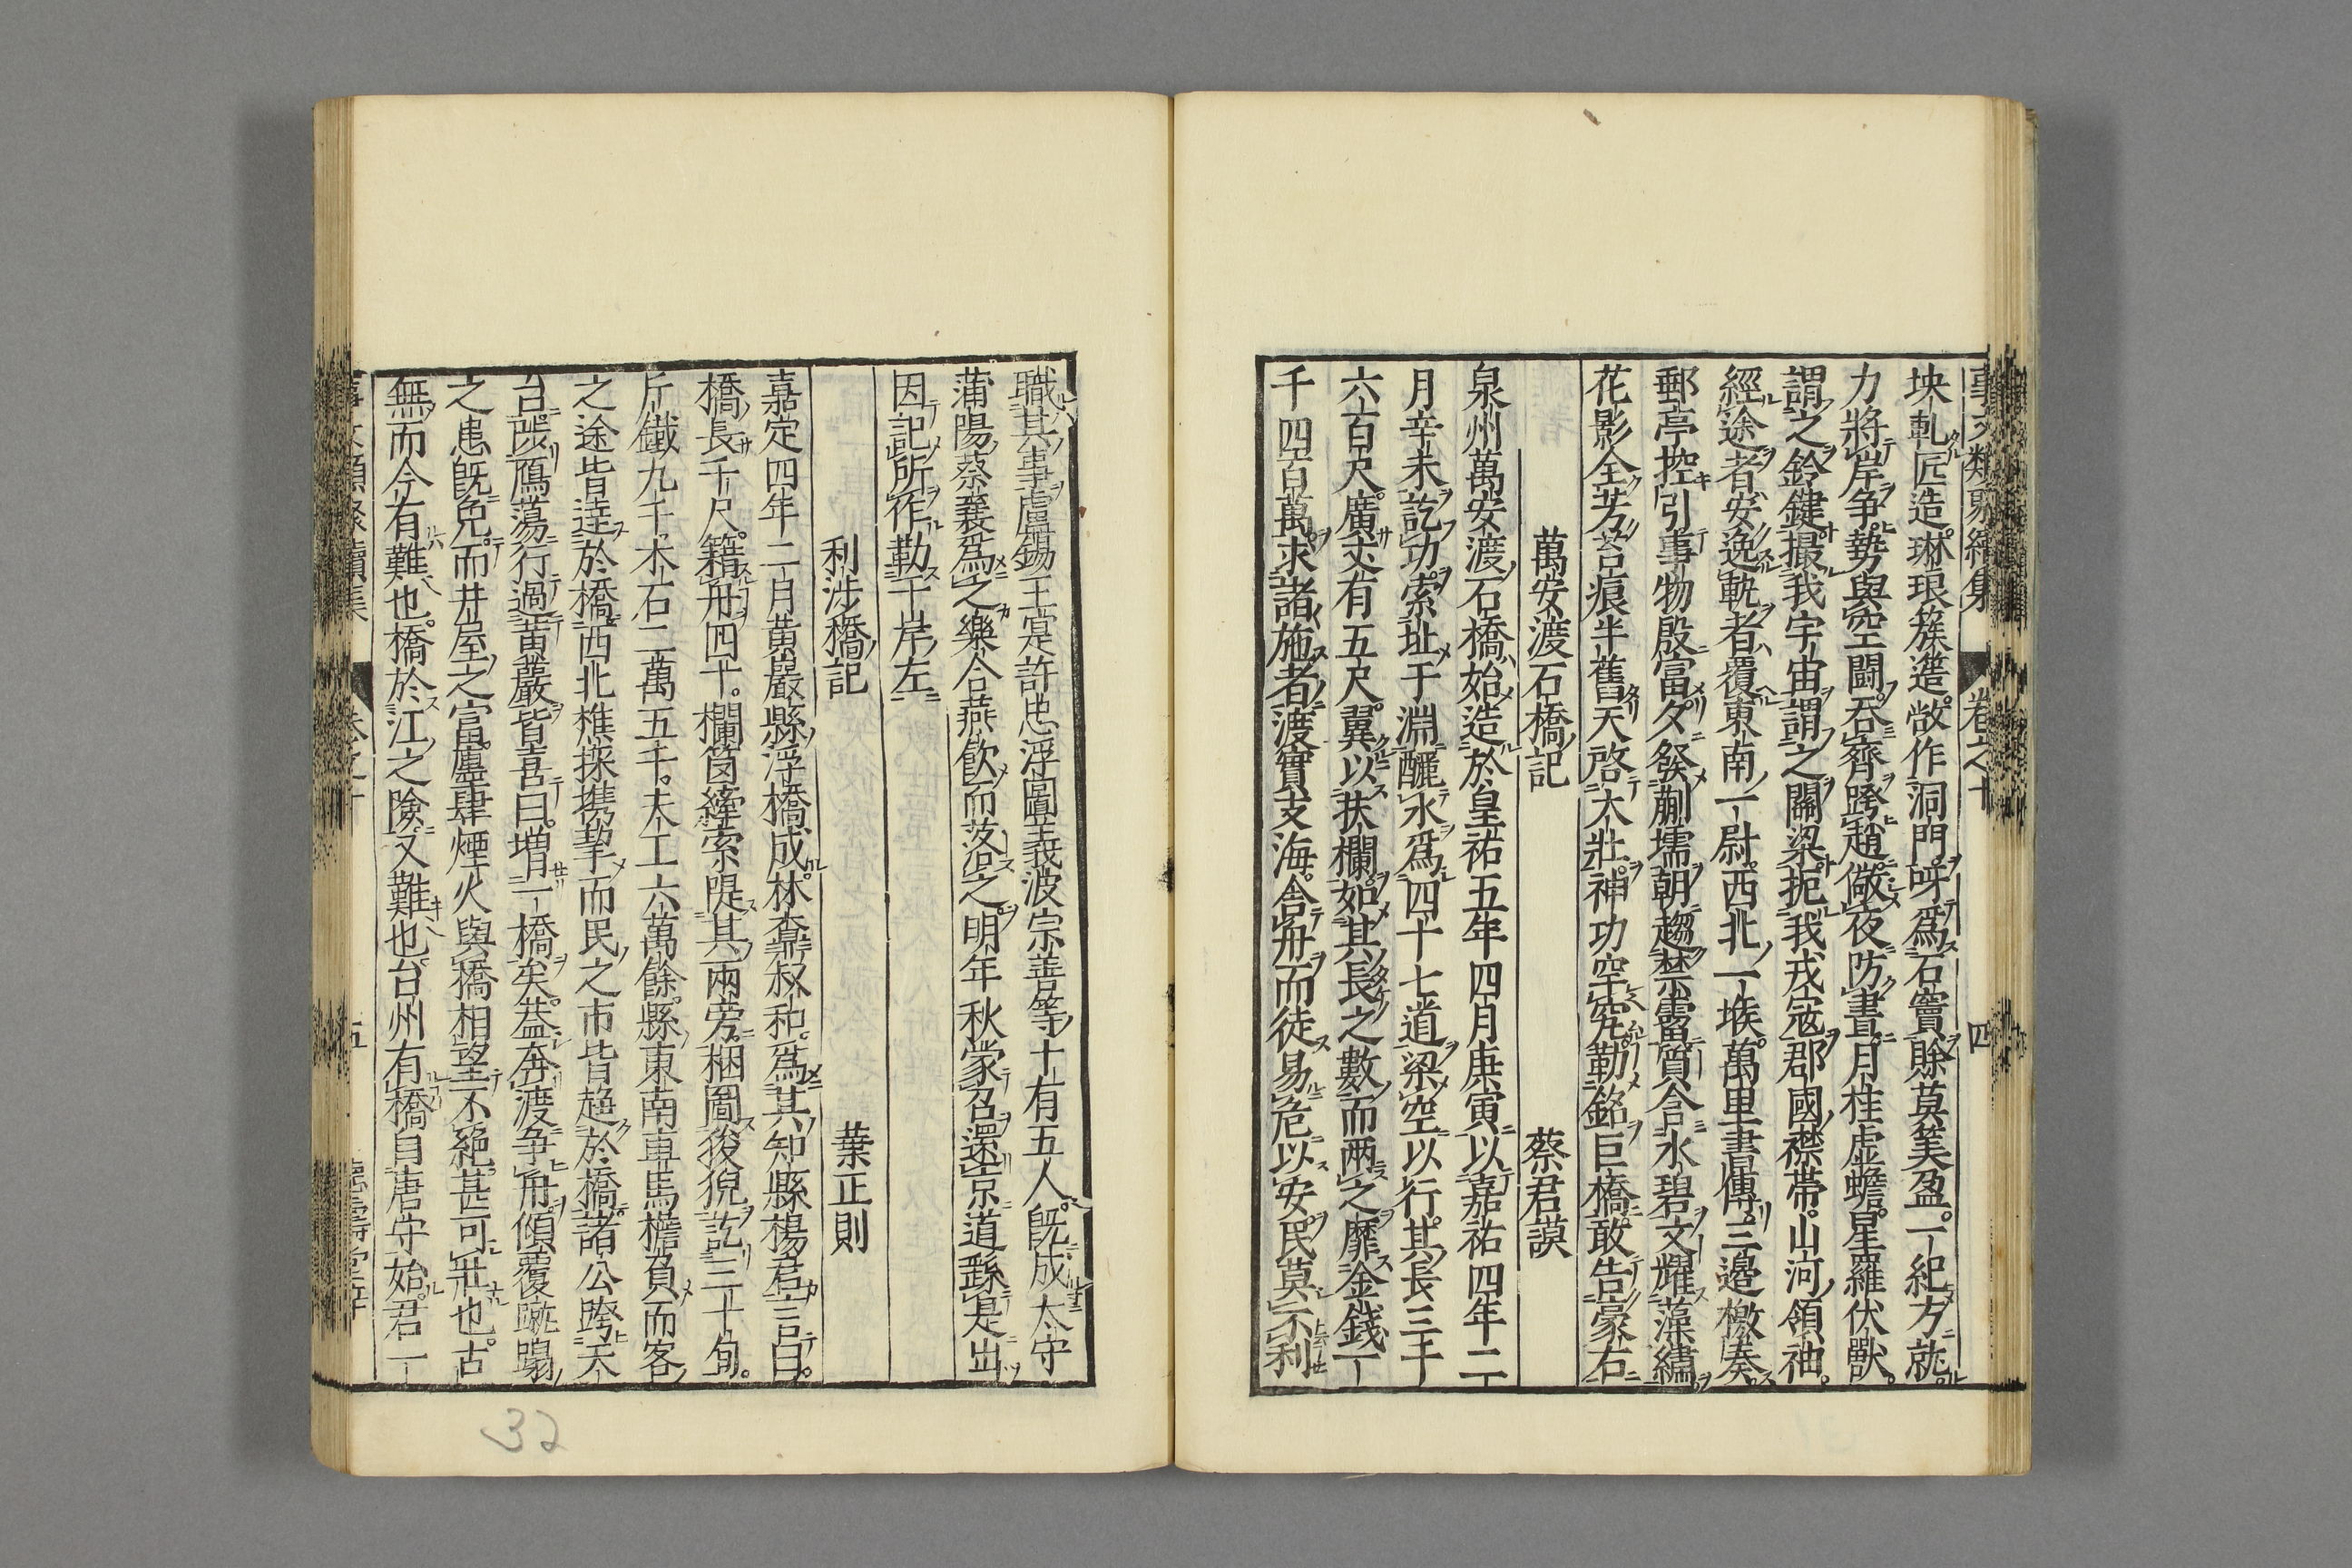 事文類聚續集 卷之十 四
坱軋匠造琳琅簇進敞作洞門呀爲石竇賖莫筭盈一紀方就
力將岸争勢與空闘呑齊跨趙儆夜防晝月桂虛蟾星羅伏獸
謂之鈴鍵撮我宇宙謂之關梁扼我戎寇郡國襟帶山河領袖
經途者安逸軌者覆東南一尉西北一堠萬里書傳三邉檄奏
郵亭控引事物殷富夕發蒯壖朝趨禁霤質含氷碧文耀藻繡
花影全芳苔痕半舊天啓大壯神功罕究勒銘巨橋敢告豪右
萬安渡石橋記 蔡君謨
泉州萬安渡石橋始造於皇祐五年四月庚寅以嘉祐四年二
月辛未訖功索址于淵釃水爲四十七道梁空以行其長三千
六百尺廣丈有五尺翼以扶欄如其長之數而兩之靡金錢一
千四百萬求諸施者渡實支海舍舟而徒易危以安民莫不利
職其事盧錫王寔許忠浮圖義波宗善等十有五人旣成太守
蒲陽蔡襄爲之樂合燕飮而落之明年秋蒙召還京道繇是出
因記所作勒于岸左
利渉橋記 葉正則
嘉定四年二月黃巖縣浮橋成林鼐叔和爲其知縣楊君言曰
橋長千尺籍舟四十欄笮縴索隄其兩旁梱圖狻猊訖三十旬
斤鐵九千木石二萬五千夫工六萬餘縣東南車馬檐負而客
之途皆達於橋西北樵採携挈而民之市皆趨於橋諸公跨天
台陵鴈蕩行過黃巖皆喜曰増一橋矣葢奔渡争舟傾覆蹴蹋
之患旣免而井屋之富廬肆煙火與橋相望不絶甚可壯也古
無而今有難也橋於江之險又難也台州有橋自唐守始君一
事文類聚續集 卷之十 五
32